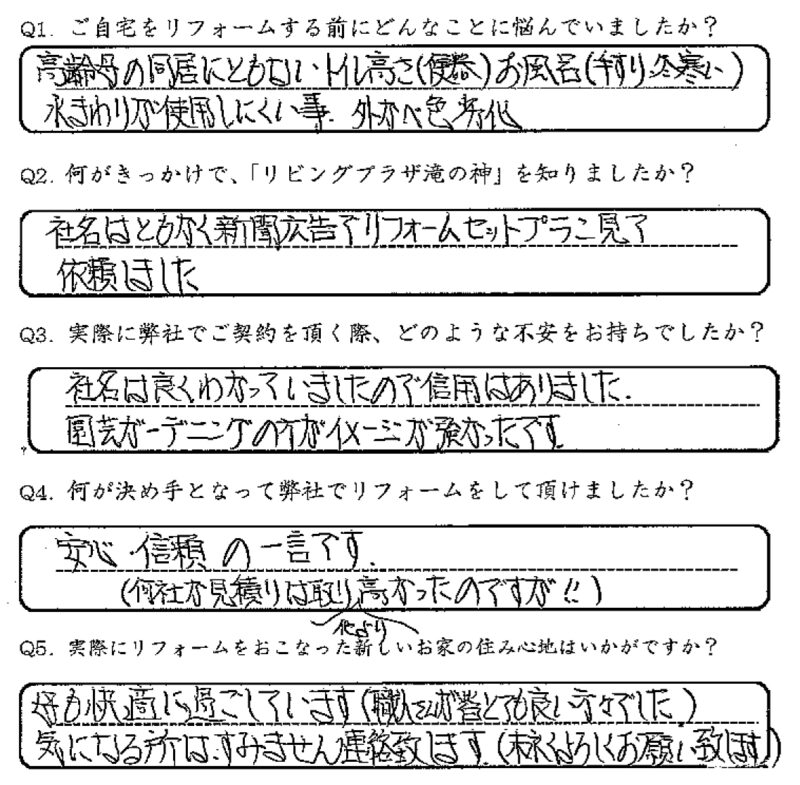 Q1. ご自宅をリフォームする前にどんなことに悩んでいましたか?
高齢母の同居にともないトイレ高さ(便器)お風呂(手すり、冬寒い)
水まわりが使用しにくい事. 外かべ色劣化
Q2. 何がきっかけで、「リビングプラザ滝の神」を知りましたか?
社名はともかく新聞広告でリフォームセットプラン見て
依頼しました
Q3. 実際に弊社でご契約を頂く際、どのような不安をお持ちでしたか?
社名は良くわかっていましたので信用はありました.
園芸ガーデニングの方がイメージが強かったです.
Q4. 何が決め手となって弊社でリフォームをして頂けましたか?
安心・信頼 の一言です.
(何社か見積りは取り 高かったのですが!!)
他より
Q5. 実際にリフォームをおこなった新しいお家の住み心地はいかがですか?
母も快適に過ごしています(職人さんが皆とても良い方々でした.)
気になる所は、すみません連絡致します.(末永くよろしくお願い致します)